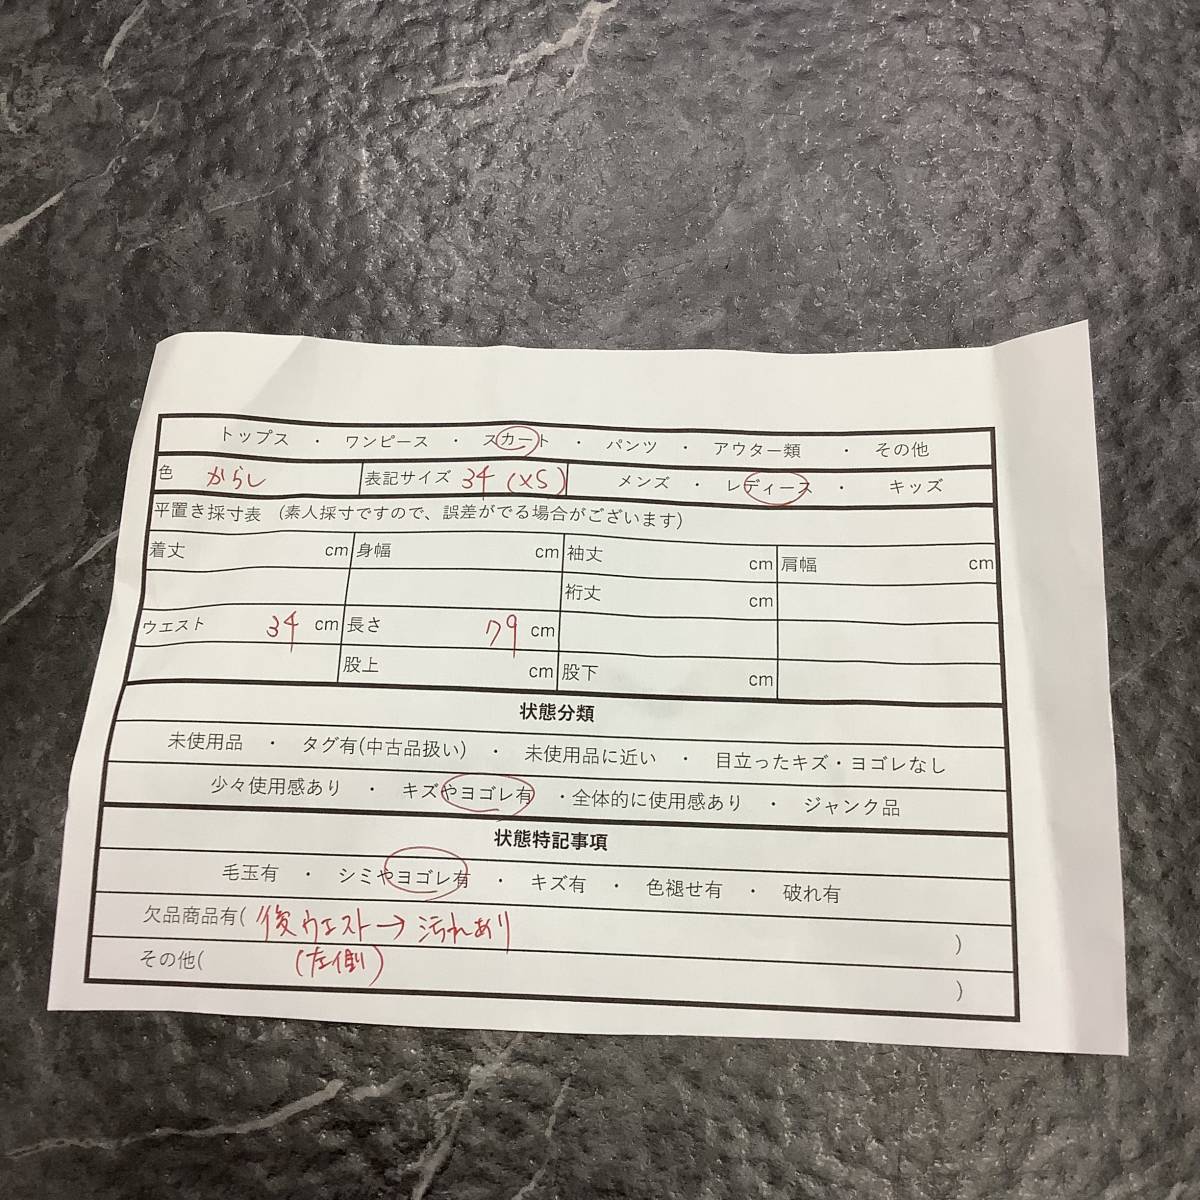 トップス ・ ワンピース ・ スカート ・ パンツ ・ アウター類 ・ その他
色 からし 表記サイズ 34 (XS) メンズ ・ レディース ・ キッズ
平置き採寸表 (素人採寸ですので、誤差がでる場合がございます)
着丈 cm 身幅 cm 袖丈 cm 肩幅 cm
裄丈 cm
ウエスト 34 cm 長さ 79 cm
股上 cm 股下 cm
状態分類
未使用品 ・ タグ有(中古品扱い) ・ 未使用品に近い ・ 目立ったキズ・ヨゴレなし
少々使用感あり ・ キズやヨゴレ有 ・全体的に使用感あり ・ ジャンク品
状態特記事項
毛玉有 ・ シミやヨゴレ有 ・ キズ有 ・ 色褪せ有 ・ 破れ有
欠品商品有( 後ウエスト→汚れあり )
その他( (左側) )